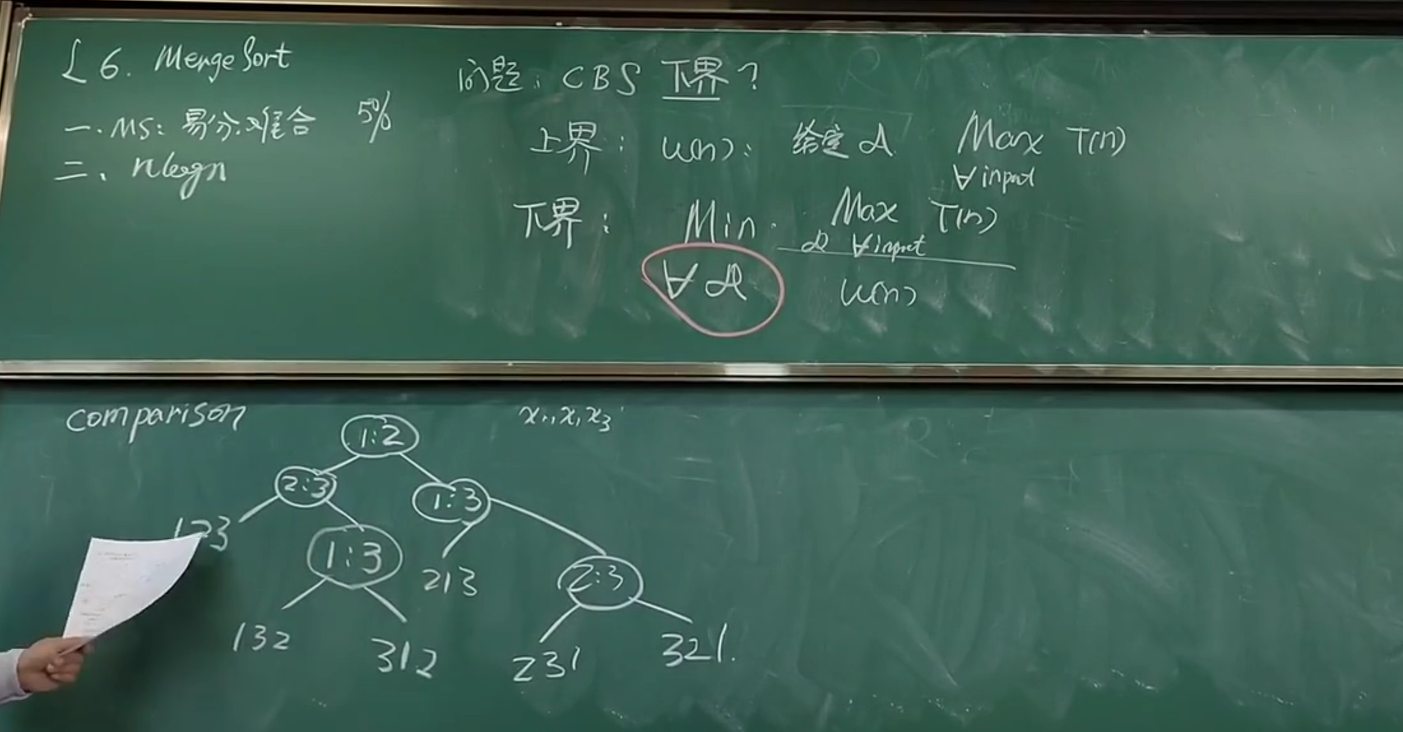 §6. MergeSort
一. MS: 易分难合 5%
二、nlogn
问题: CBS 下界?
上界: U(n): 给定A Max T(n)
∀input
下界: Min Max T(n)
A ∀input
∀A U(n)
comparison
x₁,x₂x₃
1:2
2:3 1:3
123 1:3 213 2:3
132 312 231 321.